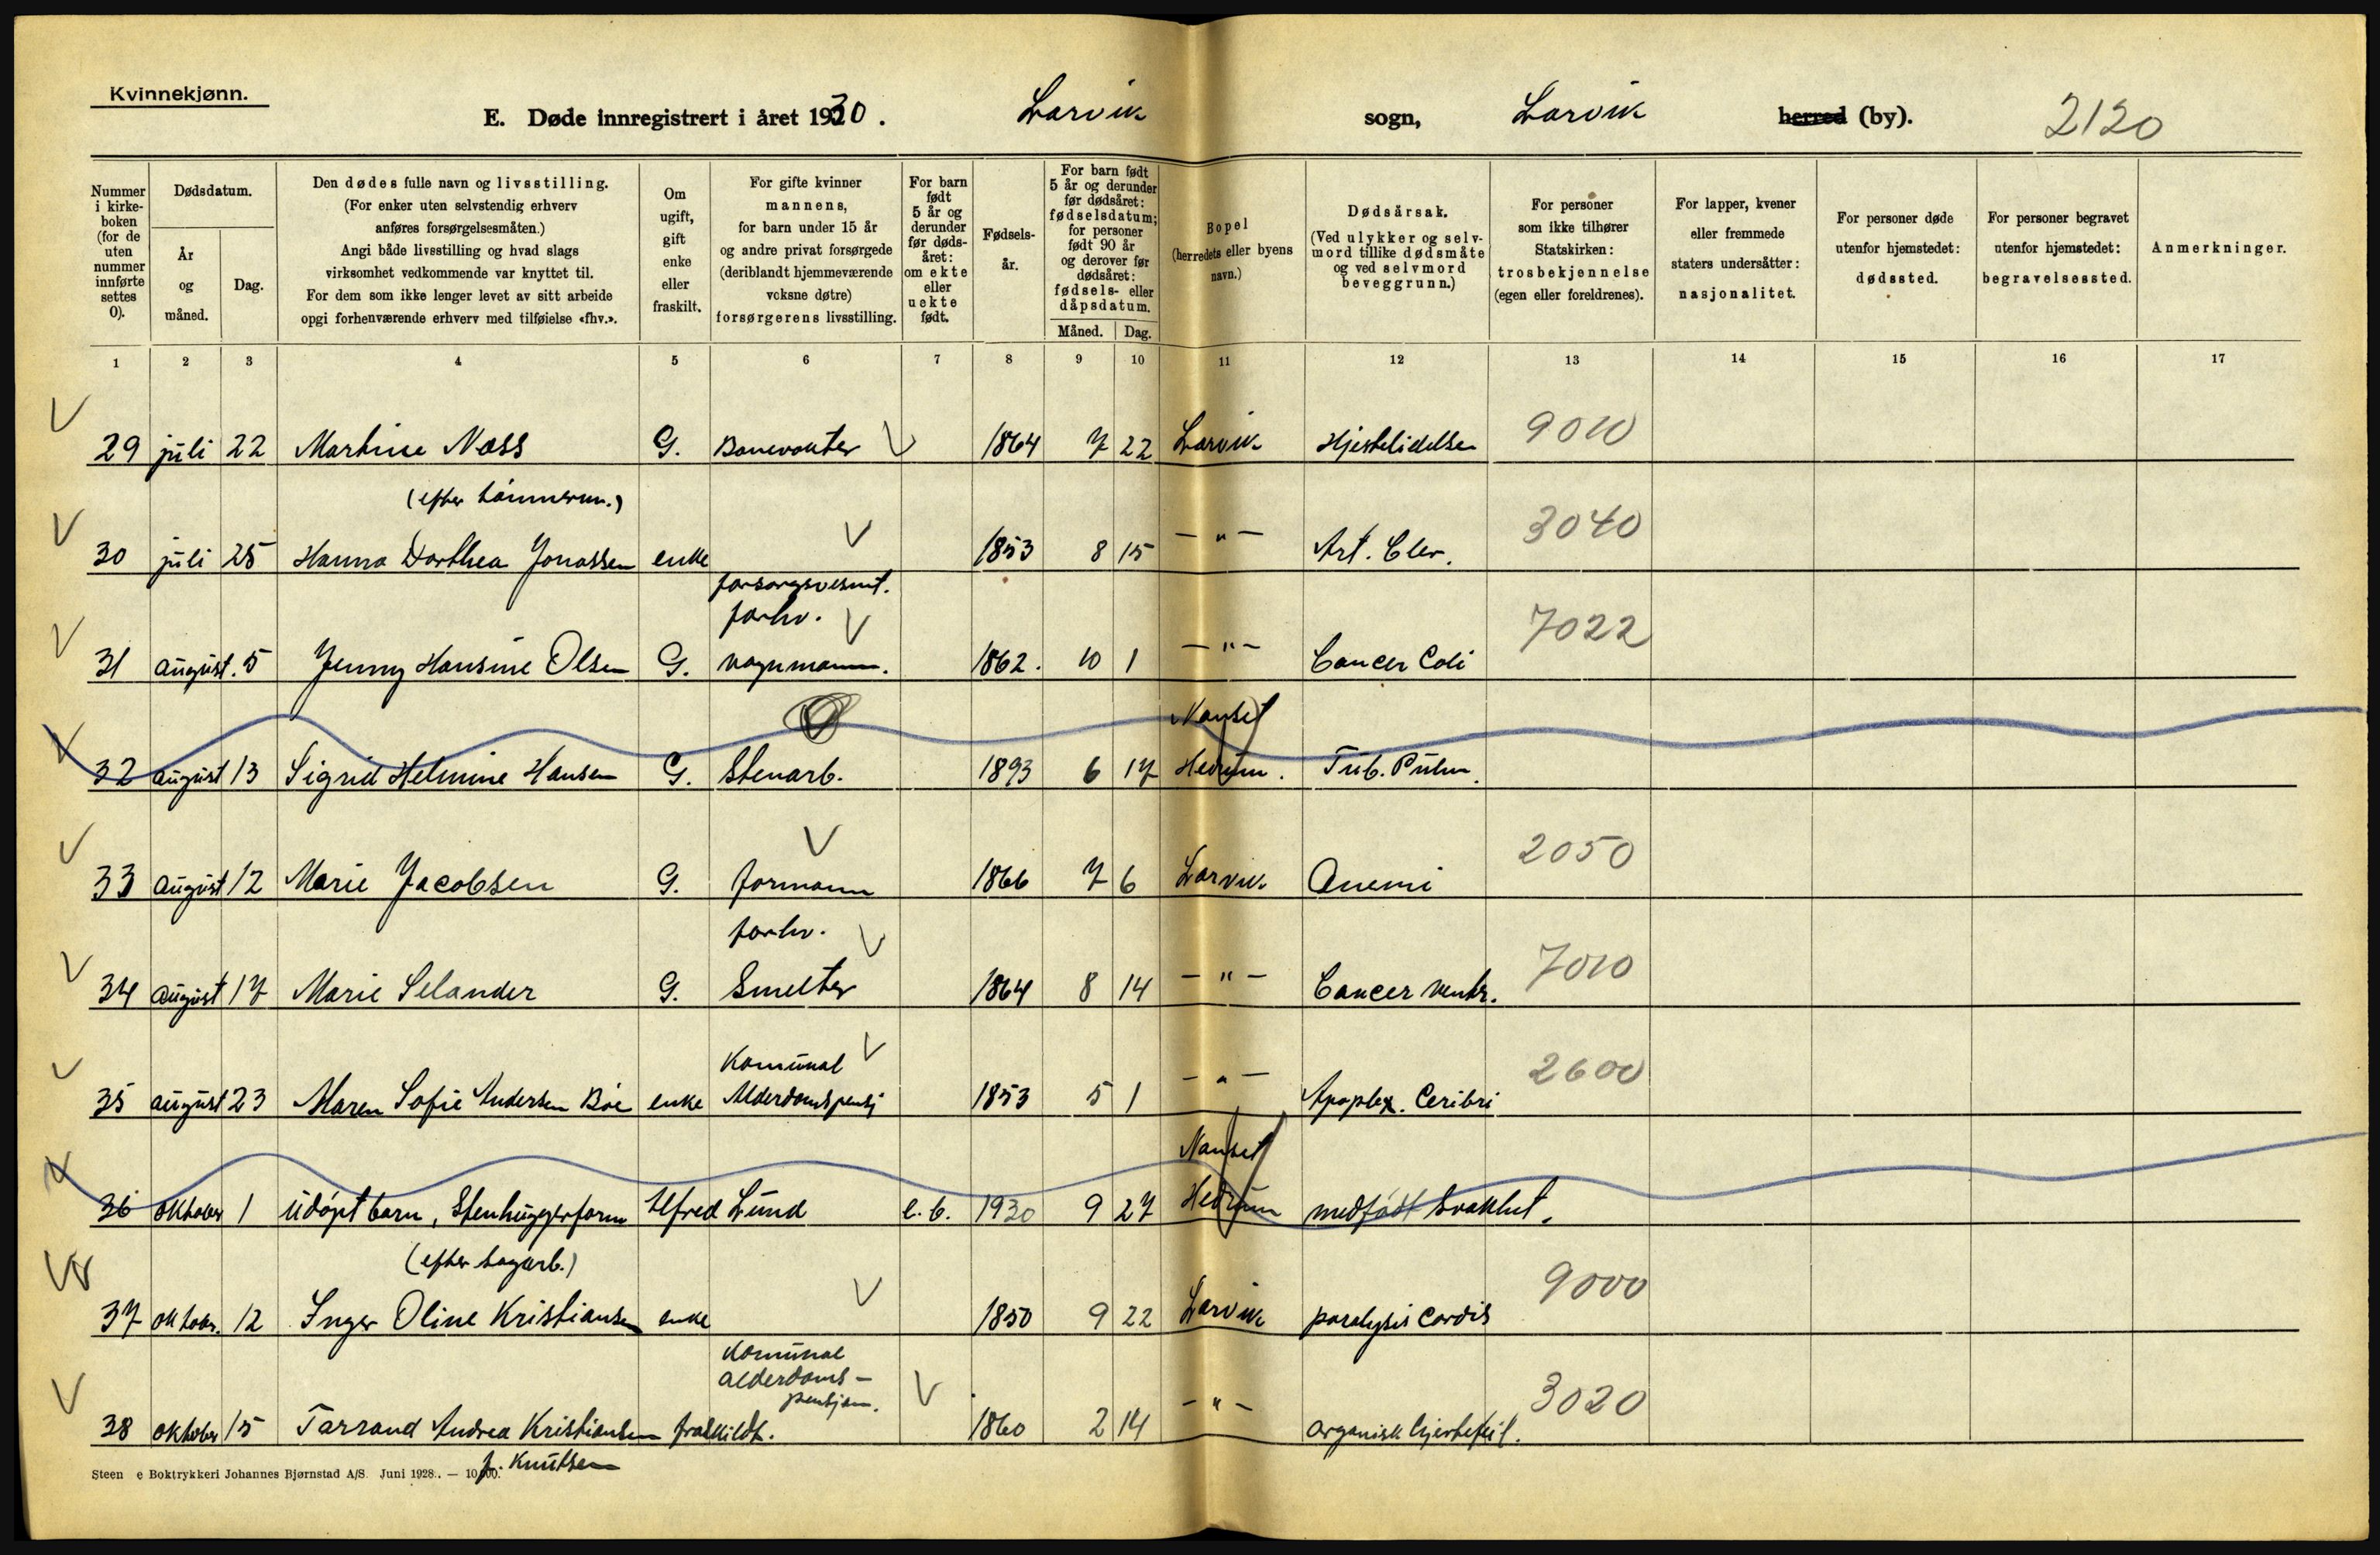 Kvinnekjønn.
E. Døde innregistrert i året 1930. Larvik sogn, Larvik herred (by). 2120
Nummer i kirke-boken (for de uten nummer innførte settes 0).
Dødsdatum.
År og måned.
Dag.
Den dødes fulle navn og livsstilling.
(For enker uten selvstendig erhverv
anføres forsørgelsesmåten.)
Angi både livsstilling og hvad slags
virksomhet vedkommende var knyttet til.
For dem som ikke lenger levet av sitt arbeide
opgi forhenværende erhverv med tilføielse «fhv.».
Om ugift, gift enke eller fraskilt.
For gifte kvinner
mannens,
for barn under 15 år
og andre privat forsørgede
(deriblandt hjemmeværende
voksne døtre)
forsørgerens livsstilling.
For barn født 5 år og derunder før døds-året: om ekte eller uekte født.
Fødsels-år.
For barn født 5 år og derunder før dødsåret: fødselsdatum; for personer født 90 år og derover før dødsåret: fødsels- eller dåpsdatum.
Måned. Dag.
Bopel (herredets eller byens navn.)
Dødsårsak.
(Ved ulykker og selv-
mord tillike dødsmåte
og ved selvmord
beveggrunn.)
For personer
som ikke tilhører
Statskirken:
trosbekjennelse
(egen eller foreldrenes).
For lapper, kvener
eller fremmede
staters undersåtter:
nasjonalitet.
For personer døde
utenfor hjemstedet:
dødssted.
For personer begravet
utenfor hjemstedet:
begravelsessted.
Anmerkninger.
1 2 3 4 5 6 7 8 9 10 11 12 13 14 15 16 17
29 juli 22 Martine Næss G. Banevokter 1864 7 22 Larvik Hjertelidelse 9010
(efter tømmerm.)
30 juli 25 Hanna Dorthea Jonassen enke 1853 8 15 — " — Art. Cler. 3040
forsorgsvesnt.
forhv.
31 august. 5 Jenny Hansine Olsen G. vognmann. 1862. 10 1 — " — Cancer Coli 7022
Nanset
32 august 13 Sigrid Helmine Hansen G. Stenarb. 1893 6 17 Hedrum. Tub. Pulm.
33 august 12 Marie Jacobsen G. formann 1866 7 6 Larvik Anemi 2050
forhv.
34 august 17 Marie Selander G. Smelter 1864 8 14 — " — Cancer ventr. 7010
Komunal
35 august 23 Maren Sofie Andersen Bøe enke Alderdomspensj 1853 5 1 — " — Apoplex. Ceribri 2600
Nanset
36 oktober 1 udøpt barn, Stenhuggerform Alfred Lund e. b. 1930 9 27 Hedrum medfødt svakhet.
(efter hagarb.)
37 oktobr. 12 Inger Oline Kristiansen enke 1850 9 22 Larvik paralysis Cordis 9000
Komunal
alderdoms-
pensjon.
38 oktober 15 Tarrand Andrea Kristiansen fraskildt. 1860 2 14 — " — organisk hjertefeil. 3020
f. Knutsen
Steen e Boktrykkeri Johannes Bjørnstad A/S. Juni 1928. — 10,000.